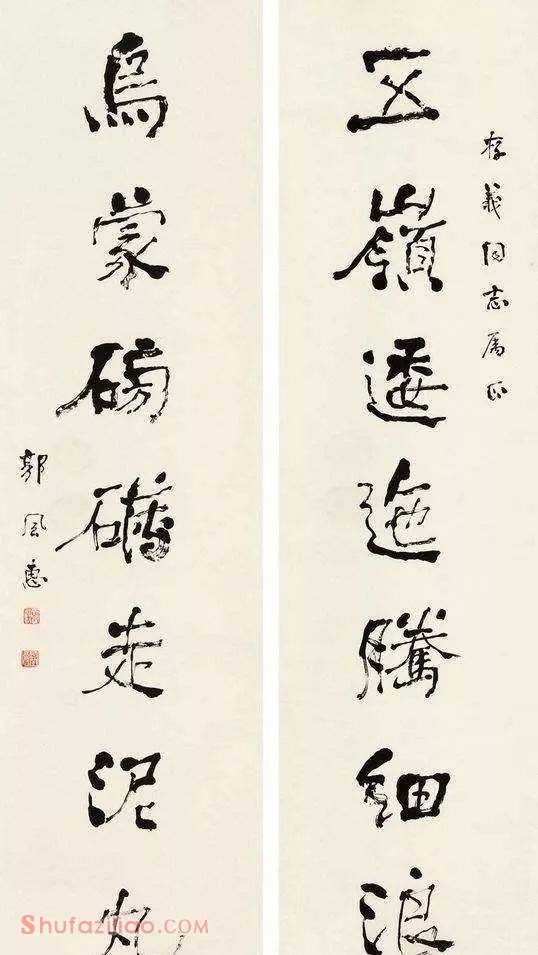 存義同志属正
五嶺逶迤騰細浪
烏蒙磅礴走泥丸
郭風惠
Shufaziliao.COM